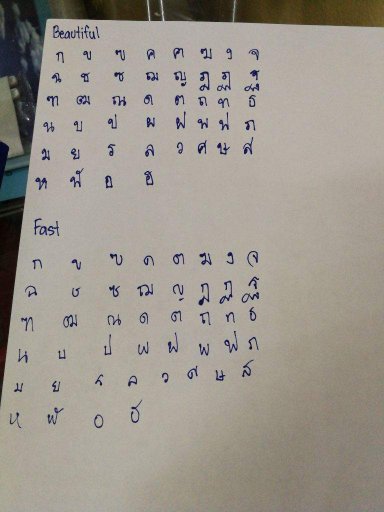 Beautiful
ก ข ฃ ค ฅ ฆ ง จ
ฉ ช ซ ฌ ญ ฎ ฏ ฐ
ฑ ฒ ณ ด ต ถ ท ธ
น บ ป ผ ฝ พ ฟ ภ
ม ย ร ล ว ศ ษ ส
ห ฬ อ ฮ
Fast
ก ข ฃ ค ฅ ฆ ง จ
ฉ ช ซ ฌ ญ ฎ ฏ ฐ
ฑ ฒ ณ ด ต ถ ท ธ
น บ ป ผ ฝ พ ฟ ภ
ม ย ร ล ว ศ ษ ส
ห ฬ อ ฮ